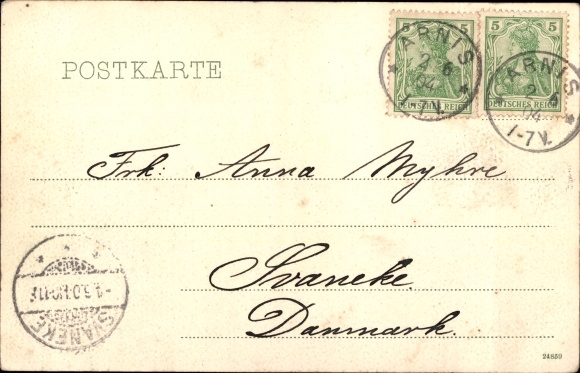 POSTKARTE
5 5
5 5
DEUTSCHES REICH
DEUTSCHES REICH
ARNIS
2 6
04
ARNIS
2 6
04
1-7V.
Frk: Anna Myhre
Svaneke.
Danmark.
SVANEKE
24859